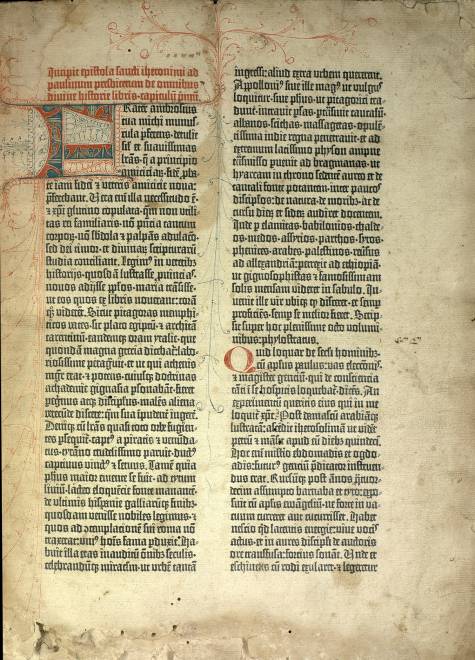 Incipit epistola sancti iheronimi ad
paulinum presbiterum de omnibus
divine historie libris·capitulū pmū.
Frater ambrosius
tua michi munus-
cula pferens·detulit
sil' et suavissimas
lrās·q̄ a principio
amiciciaꝝ·fidē pba-
te iam fidei ⁊ veteris amicicie nova:
pferebant. Vera em̄ illa necessitudo ē·
⁊ xp̄i glutino copulata·qm̄ non utili-
tas rei familiaris·nō pn̄tia tantum
corpoꝝ·nō sbdola ⁊ palpās adulacō·
sed dei timor·et divinaꝝ scripturaꝝ
studia conciliant. Legim⁹ in veterib⁹
historijs·quosdā lustrasse puincias·
novos adijsse ppl'os·maria trāsisse·
ut eos quos ex libris noverant: corā
q̄ꝫ viderēt. Sicut pitagoras memphi-
ticos vates·sic plato egiptū·⁊ architā
tarentinū·eandemq̄ꝫ oram ytalie·que
quondā magna grecia dicebat̄·labo-
riosissime peragravit·et ut qui athenis
mgr̄ erat·⁊ potens·cuiusq̄ꝫ doctrinas
achademie gignasia psonabāt·fieret
pegrinus atq̄ꝫ discipulus·malēs aliena
verecunde discere: qm̄ sua īpudent̄ ingerē.
Deniq̄ꝫ cū lrās quasi toto orbe fugien-
tes psequit̄·capt⁹ a piratis ⁊ venunda-
tus·tyrāno crudelissimo paruit·duct⁹
captivus vinct⁹ ⁊ servus. Tamē quia
phus maior emente se fuit·ad tytum
livium·lacteo eloquētie fonte manantē·
de ultimis hispanie galliarūq̄ꝫ finib⁹·
quosdam venisse nobiles legimus·⁊
quos ad cōtemplacionē sui roma nō
traxerat: unius hoīs fama pduxit. Ha-
buit illa etas inauditū oīnib⁹ seculis·
celebrandūq̄ꝫ miraclm·ut urbē tantā
ingressi: aliud extra urbem quererent.
Apolloni⁹ sive ille mag⁹ ut vulgus
loquitur·sive phus·ut pitagorici tra-
dunt·intravit psas·ptrāsivit caucasū·
albanos·scithas·massagetas·opulē-
tissima indie regna penetravit·et ad
extremum latissimo phison ampne
trāsmisso puenit ad bragmanas·ut
hyarcam in throno sedentē aureo et de
tantali fonte potantem·inter paucos
discipl'os·de natura·de moribus ac de
cursu dieꝝ et sideꝝ audiret docentem.
Inde p elamitas·babilonios·chalde-
os·medos·assyrios·parthos·syros·
phenices·arabes·palestinos·reversus
ad allexandriā: perrexit ad ethiopiā·
ut gignosophistas ⁊ famosissimam
solis mensam videret in sabulo. In-
venit ille vir ubiq̄ꝫ qd disceret·et semp
proficiēs·semp se melior fieret. Scrip-
sit super hoc plenissime octo volumi-
nibus·phylostratus.
Quid loquar de secli hominibꝫ·
cū apl'us paulus·vas electōnis·
⁊ magister gencium·qui de consciencia
tāti ī se hospitis loquebat̄·dicēs. An
experimentum queritis eius qui in me
loquit̄ xp̄c. Post damascū arabiāq̄ꝫ
lustratā: ascēdit iherosolimā ut vidēt
petrū ⁊ māsit apud eū diebꝫ quindecī.
Hoc em̄ misterio ebdomadis et ogdo-
adis: futur⁹ genciū p̄dicator instruen-
dus erat. Rursūq̄ꝫ post ānos q̄tuor-
decim assumpto barnaba et tyto: expo-
suit cū apl'is ewāgeliū·ne forte in va-
cuum curreret aut cucurrisset. Habet
nescio qd latentis energie·vive vocis
actus·et in aures discipl'i de auctoris
ore transfusa: forcius sonat. Unde et
eschines cū rodi exularet·⁊ legeretur